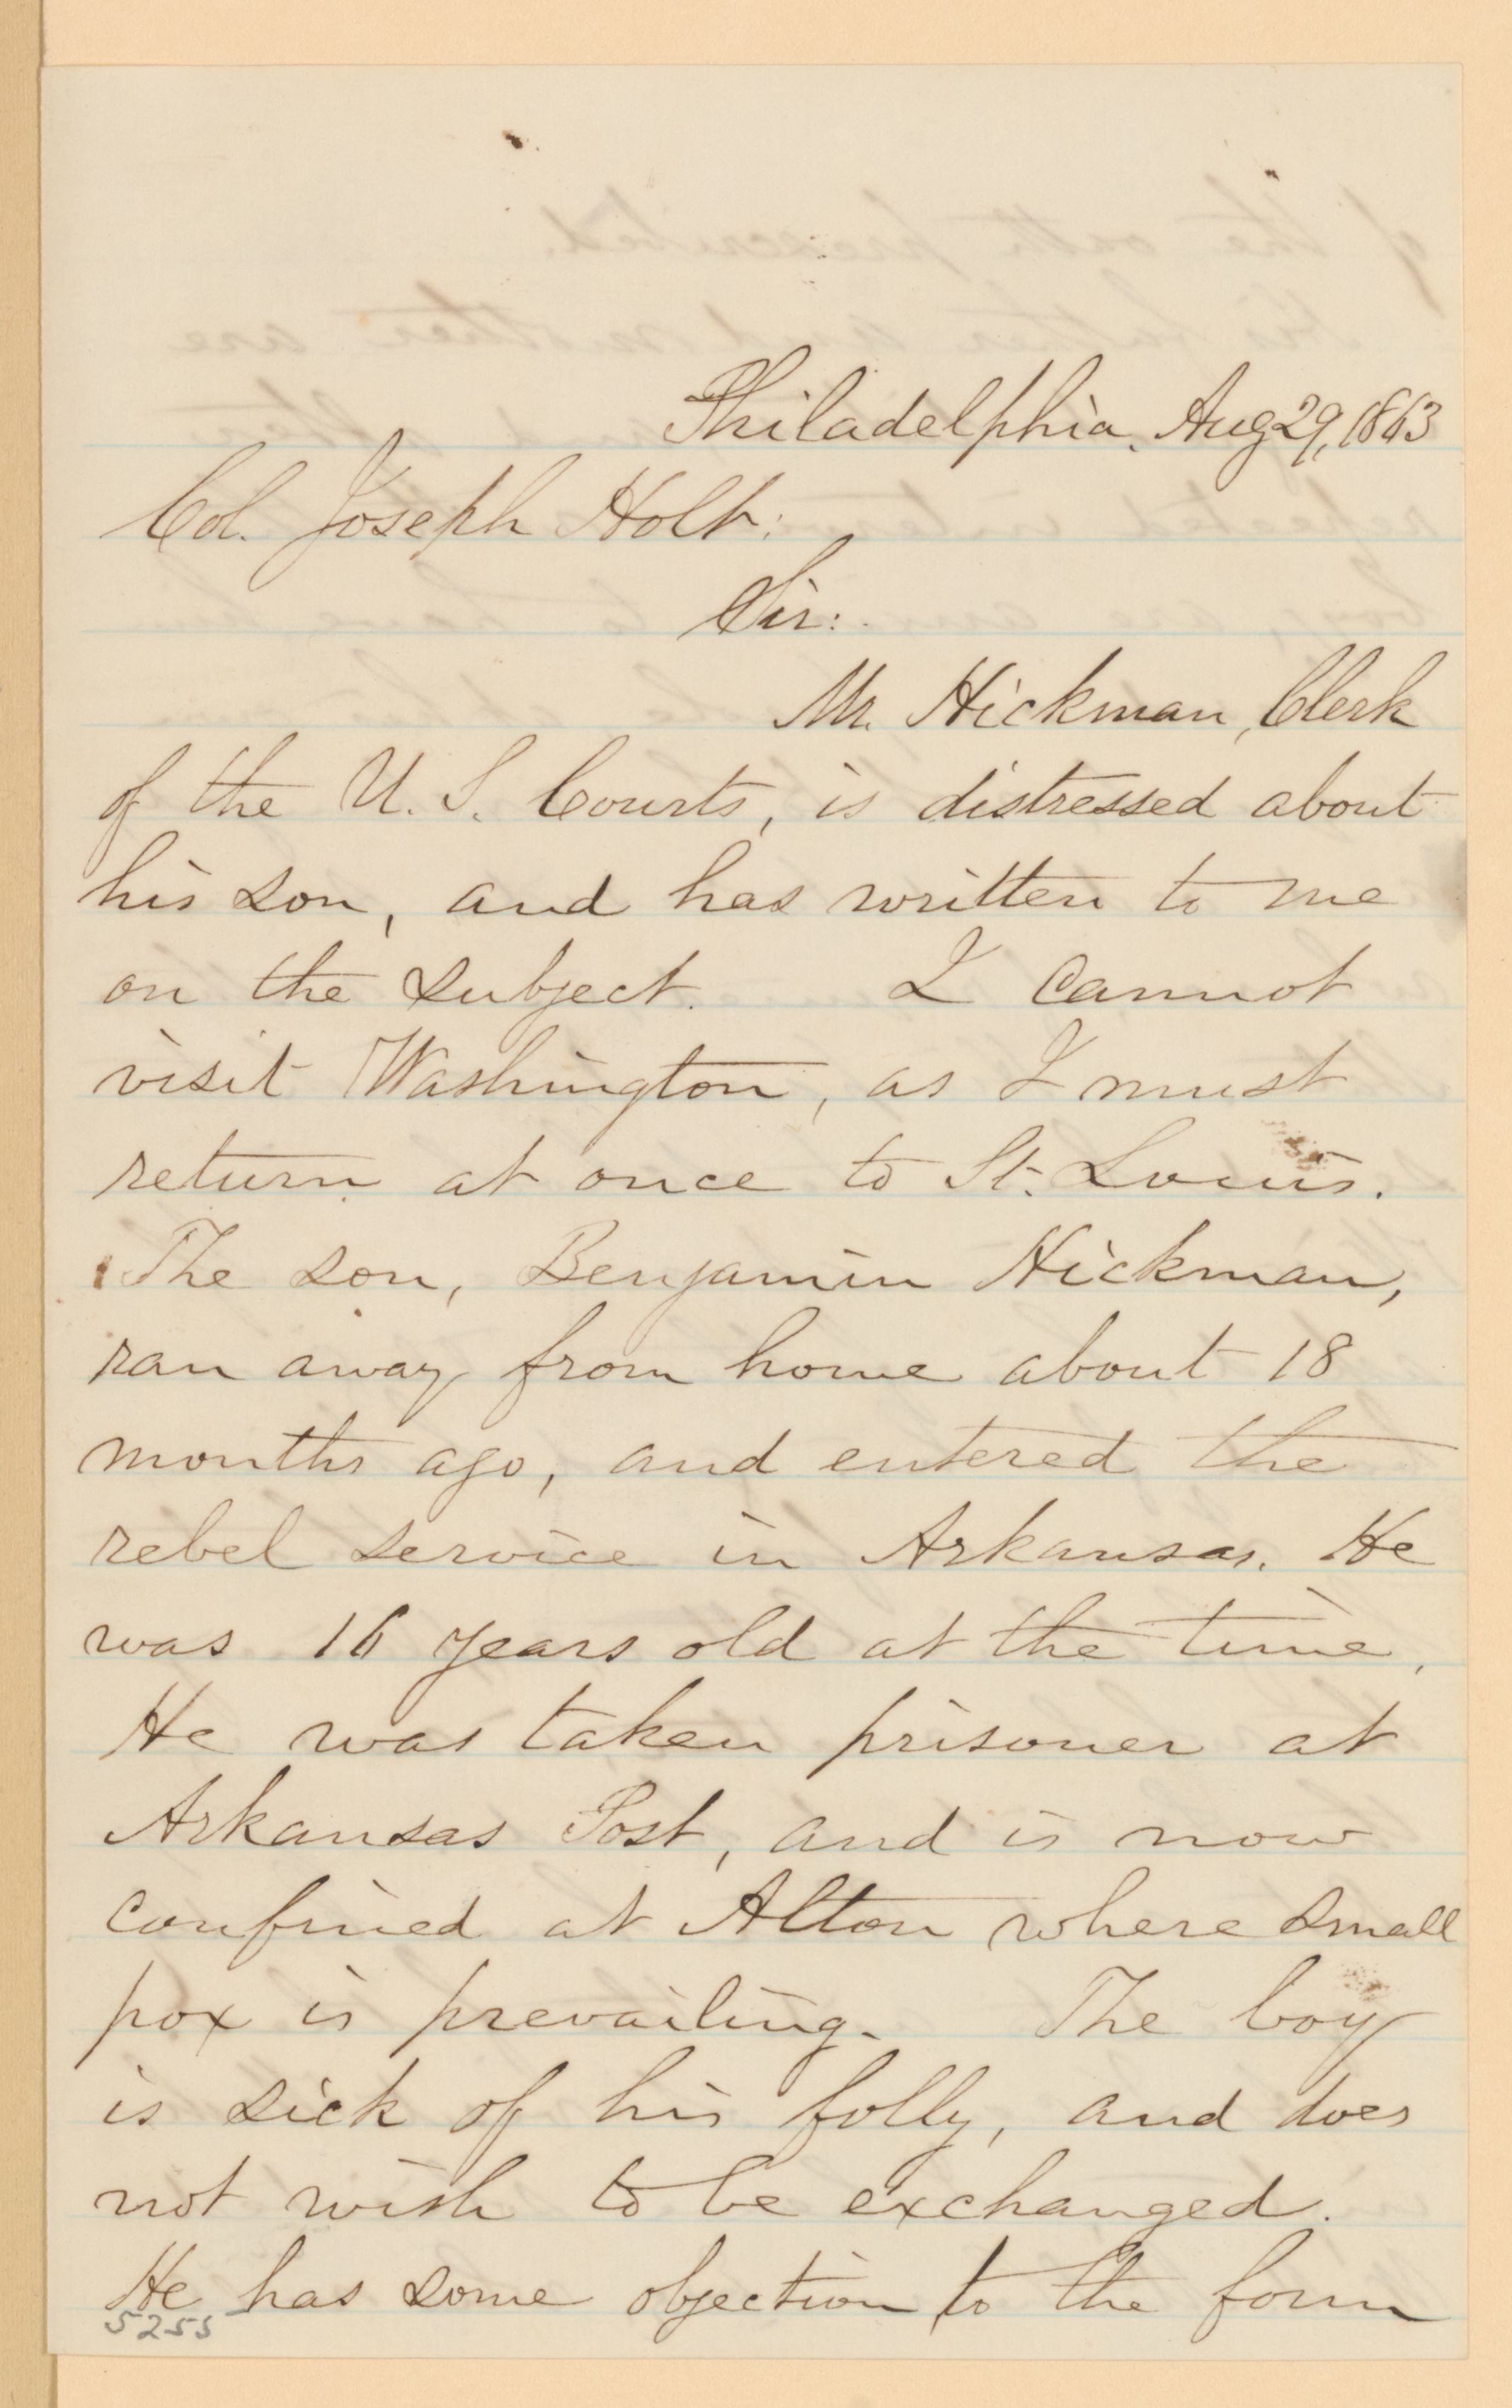 Philadelphia, Aug 29, 1863
Col. Joseph Holt:
Sir:
Mr. Hickman, Clerk
of the U. S. Courts, is distressed about
his son, and has written to me
on the subject. I cannot
visit Washington, as I must
return at once to St. Louis.
The son, Benjamin Hickman,
ran away from home about 18
months ago, and entered the
rebel service in Arkansas. He
was 16 years old at the time.
He was taken prisoner at
Arkansas Post, and is now
confined at Alton where small
pox is prevailing. The boy
is sick of his folly, and does
not wish to be exchanged.
He has some objection to the form
5255